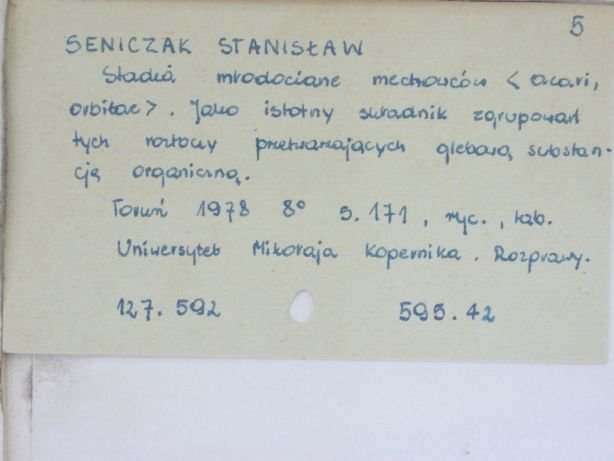 5
SENICZAK STANISŁAW
Stadia młodociane mechowców <acari,
orbitae>. Jako istotny składnik zgrupowań
tych roztoczy przetwarzających glebową substan-
cję organiczną.
Toruń 1978 8° s. 171, ryc., tab.
Uniwersytet Mikołaja Kopernika. Rozprawy.
127.592 595.42